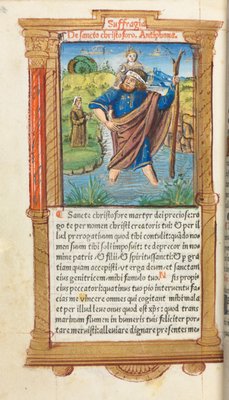 Suffragia
De sancto christoforo. Antiphona.
Sancte christofore martyr dei preciose: ro
go te per nomen christi creatoris tui: & per il
lud prerogatiuum quod tibi contulit: quãdo no
men suum tibi soli imposuit: te deprecor in no
mine patris & filii: & spiritussancti: & p gra
tiam quam accepisti: ut erga deum: et sanctam
eius genitricem: mihi famulo tuo N sis propici
us peccatori: quatinus tuo pio interuentu fa
cias me vincere omnes qui cogitant mihi mala
et per illud leue onus quod est xps: quod trans
marinum flumen in humeris tuis feliciter por
tare meruisti: alleuiare digneris presentes me